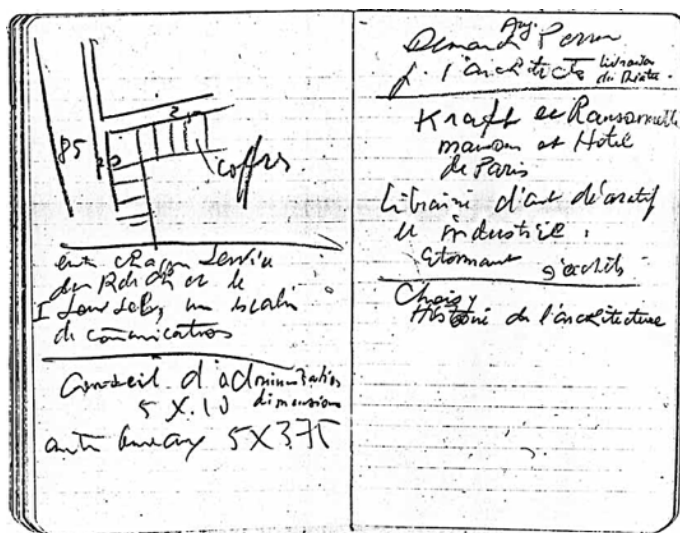 85
2
coffres
entre chaque service
du Rdch et le
I sous sol, un escalier
de comunication
Conseil d'administration
5 X 10 dimensions
5 X 3.75
Aug.
Demand Perret
l'architecte
Kraft et Ransonnette
maisons et Hôtel
de Paris
Librairie d'art décoratif
et industriel
étonnant
Choisy
Histoire de l'architecture